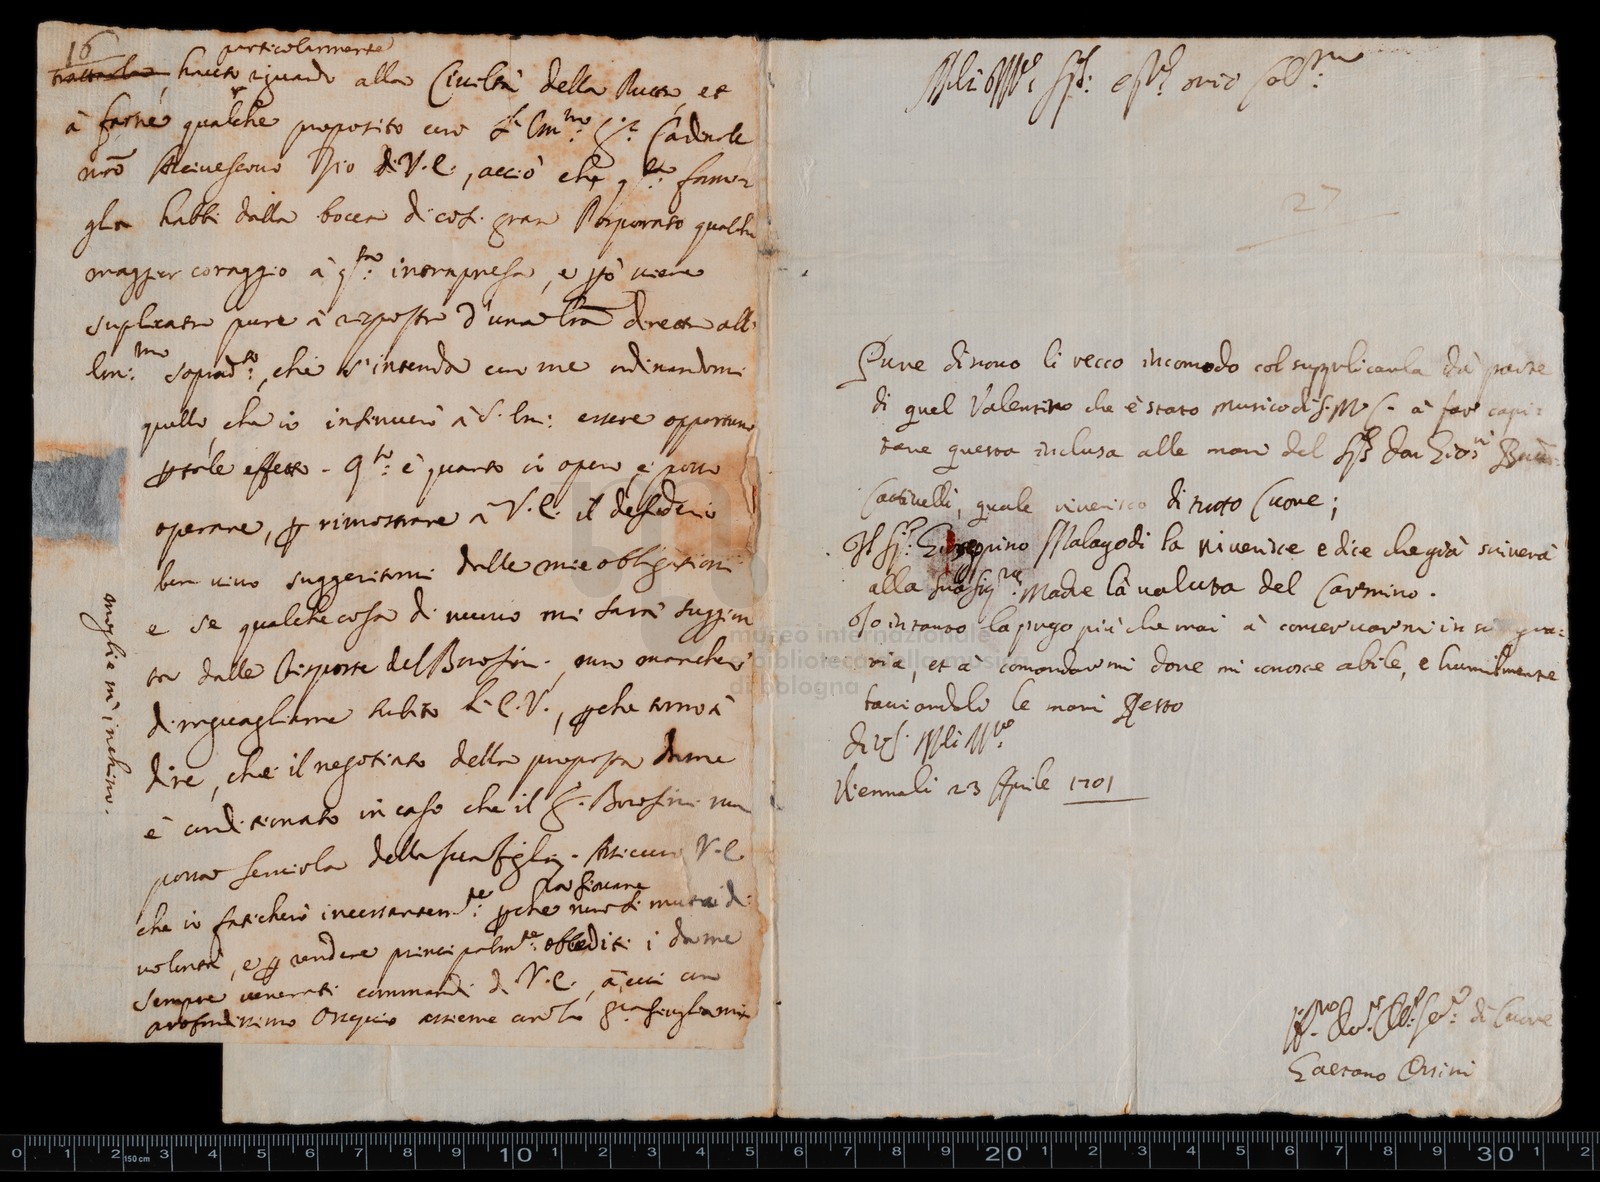 16
particolarmente
havuto riguardo alla Civiltà della Putta, et
à farne qualche proposito con S. Em.mo S.r Cardinale
nrõ Arcivescovo Zio di V.E., acciò che q.ta fami-
glia habbi dalla bocca di cosi gran Porporato qualche
maggior coraggio à q.sta intrapresa, e però viene
suplicata pure à risposta d'una lrã diretta all
Em.mo soprad.to, che s'intenda con me ordinandomi
quello, che io insinuerò à S. Em: essere opportuno
per tale effetto. Q.to è quanto io opero, e posso
operare, per rimostrare à V.E. il desiderio
ben vivo suggeritomi dalle mie obligationi
e se qualche cosa di nuovo mi sarà suggeri
ta dalle risposte del Borosini, non mancherò
di raguagliarne subito L'E.V., perche torno à
dire, che il negotiato della proposta da me
è conditionato in caso che il S.r Borosini non
possa servirla della sua figlia. Assicuro V.E.
che io faticherò incessantem.te: perche non si muti di
la Giovane
volontà, e per rendere principalm.te obbediti i da me
sempre venerati commandi di V.E., à cui con
profondissimo Ossequio assieme con la
moglie m'inchino.
museo internazionale
e biblioteca della musica
di bologna
27
Pure di novo li recco incomodo col supplicarla da parte
di quel Valentino che è stato musico di S.M.C. à far capi-
tare questa inclusa alle mani del Sig.r Don
quale riverisco di tutto Cuore;
Il Sig.r Pelegrino Malagodi la riverisce e dice che già scriverà
alla sua Sig.ra Madre la valuta del Carmino.
Io intanto la prego più che mai à conservarmi in sua gra-
zia, et à comandarmi dove mi conosce abile, e humilmente
baciandoli le mani Resto
di V.S. Molto Ill.re
Vienna li 23 Aprile 1701
di Cuore
Gaetano Orsini